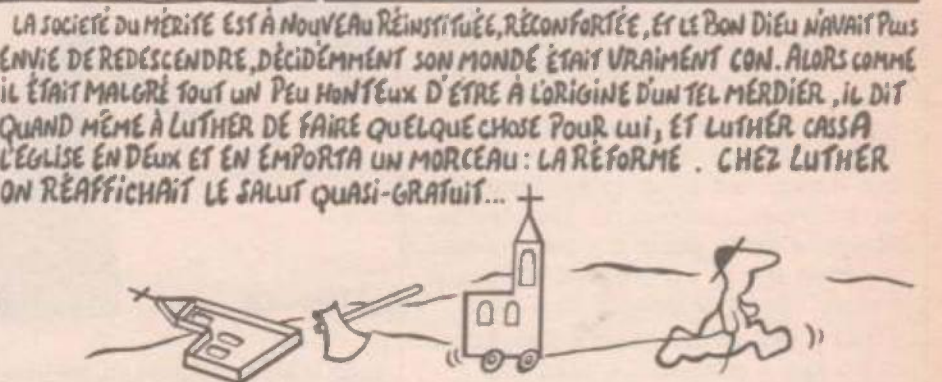 LA SOCIETÉ DU MÉRITE EST À NOUVEAU RÉINSTITUÉE, RÉCONFORTÉE, ET LE BON DIEU N'AVAIT PLUS
ENVIE DE REDESCENDRE, DÉCIDÉMMENT SON MONDE ÉTAIT VRAIMENT CON. ALORS COMME
IL ÉTAIT MALGRÉ TOUT UN PEU HONTEUX D'ÊTRE À L'ORIGINE D'UN TEL MERDIER, IL DIT
QUAND MÊME À LUTHER DE FAIRE QUELQUE CHOSE POUR LUI, ET LUTHER CASSA
L'ÉGLISE EN DEUX ET EN EMPORTA UN MORCEAU : LA RÉFORME. CHEZ LUTHER
ON RÉAFFICHAIT LE SALUT QUASI-GRATUIT...